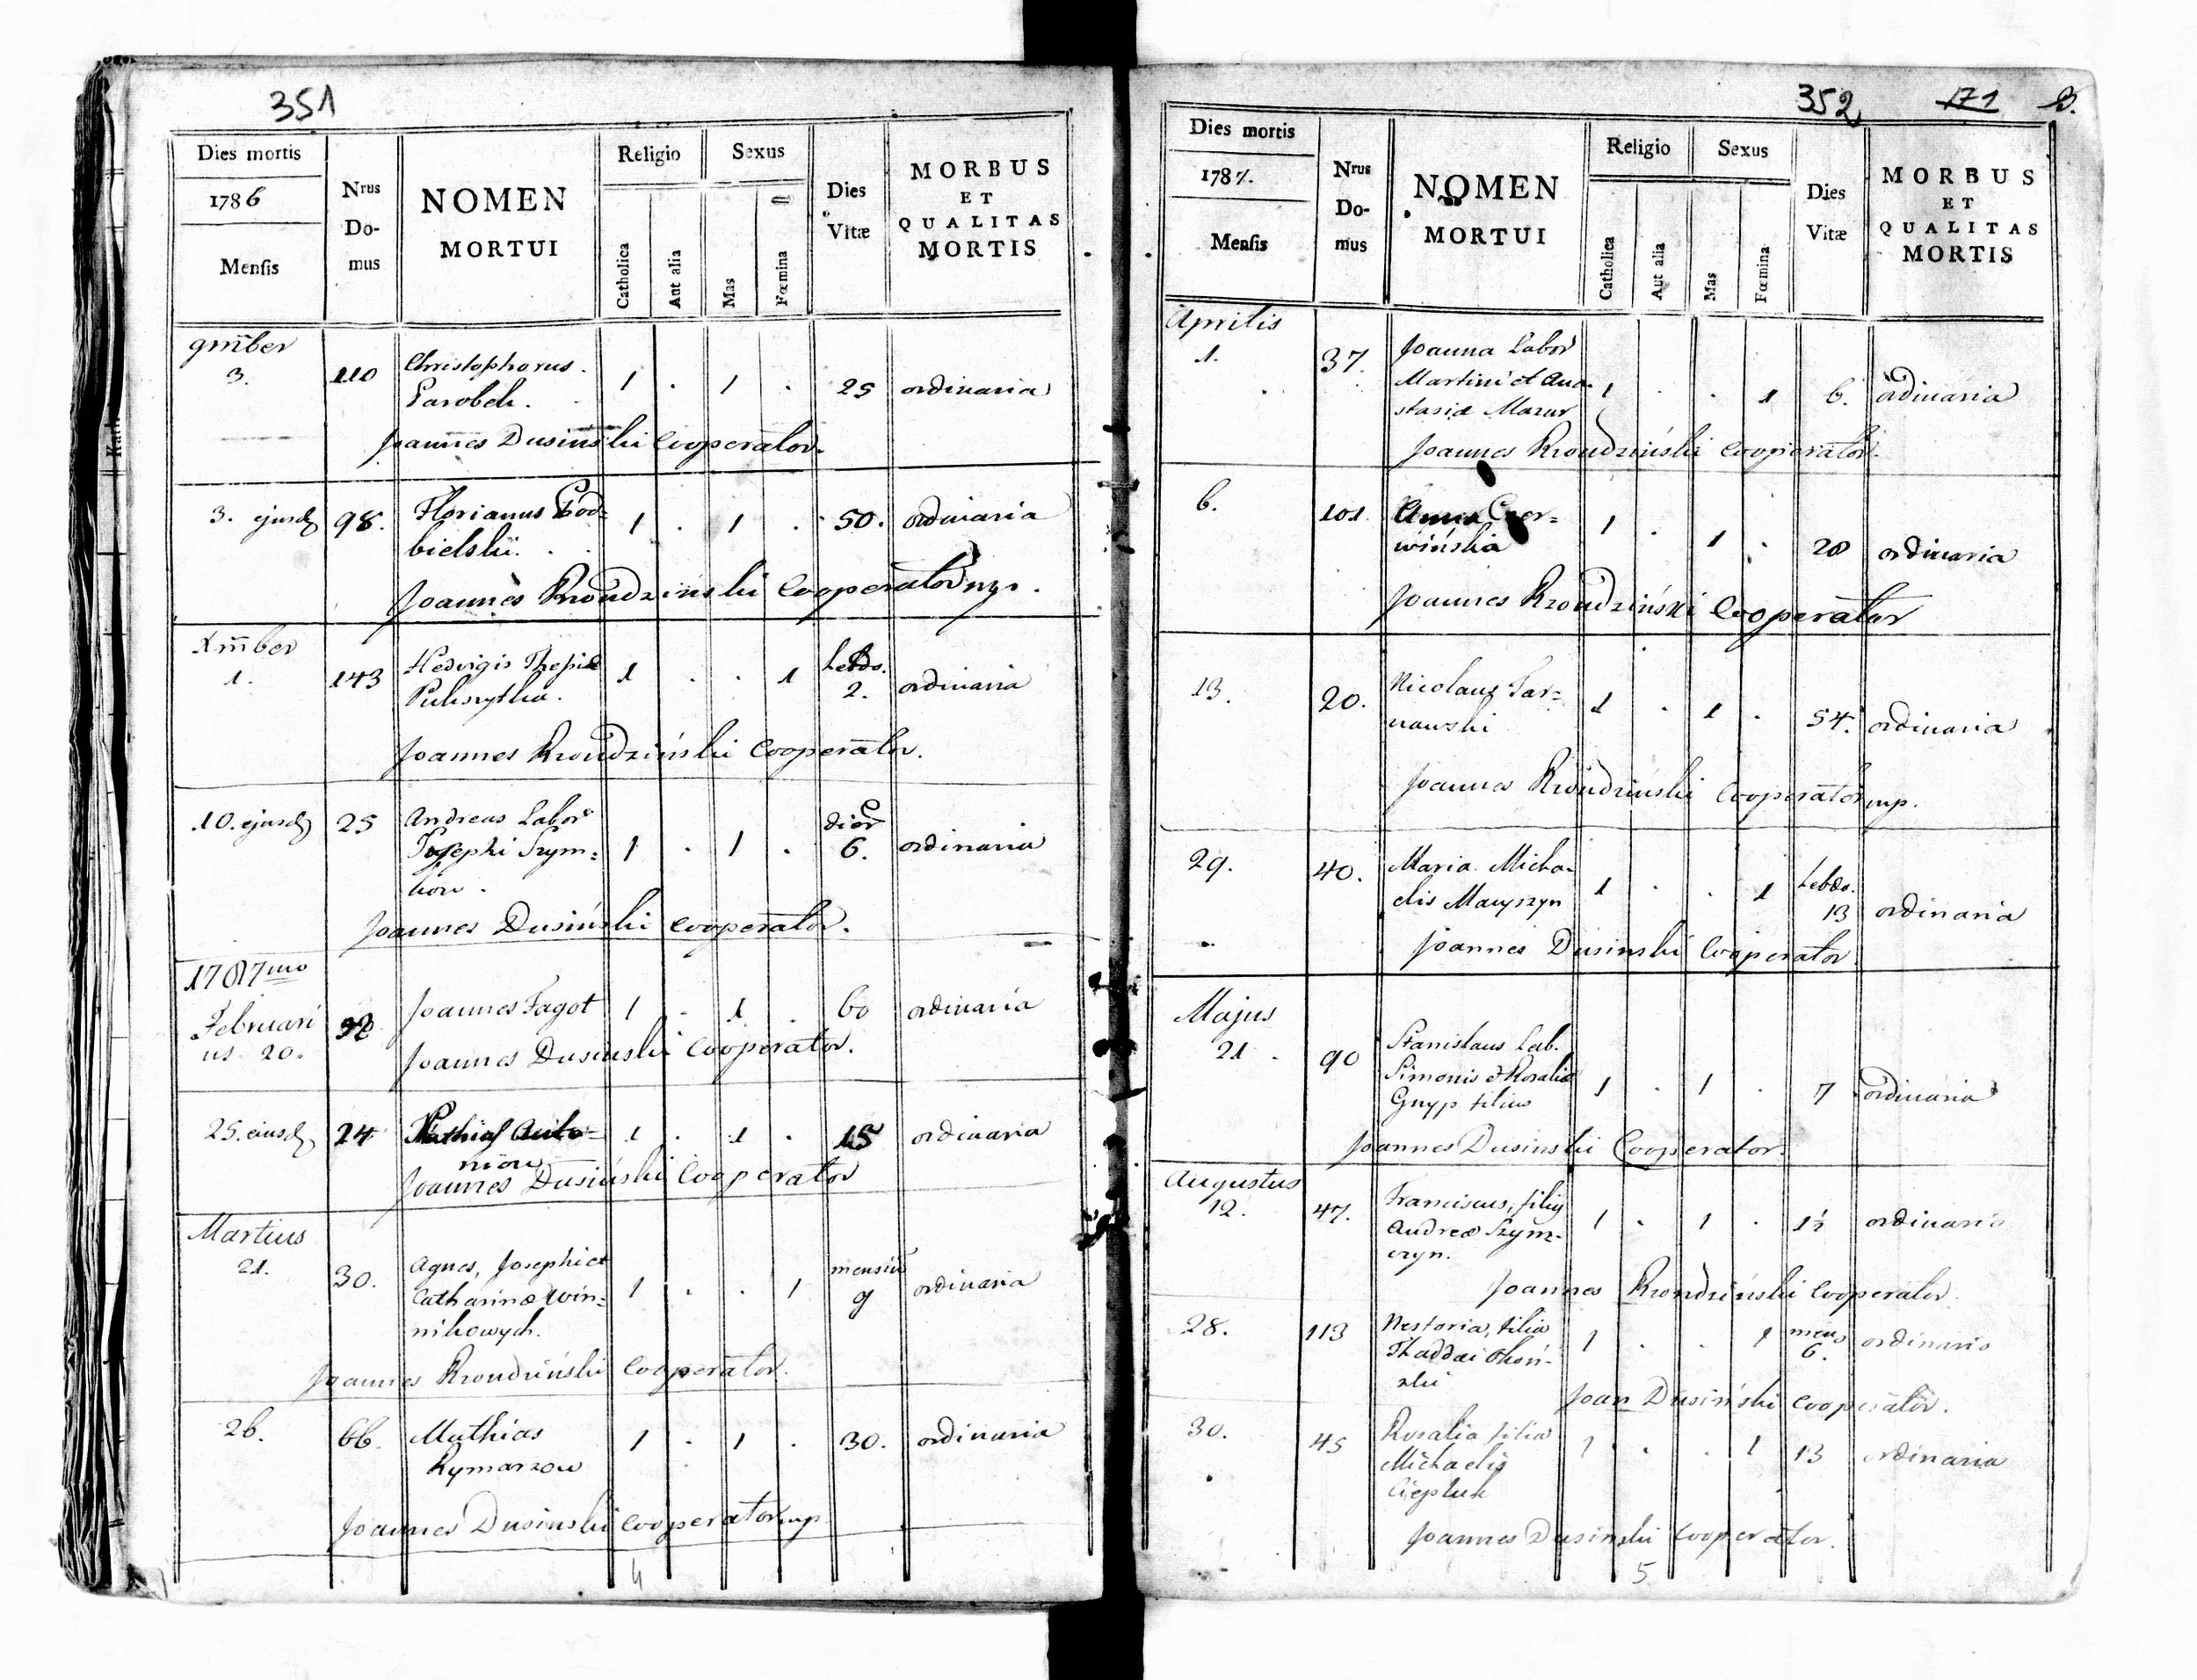 351
Dies mortis
1786
Mensis
Nrus
Do-
mus
NOMEN
MORTUI
Religio
Catholica
Aut alia
Sexus
Mas
Fœmina
Dies
Vitæ
MORBUS
ET
QUALITAS
MORTIS
9mber
3. 110 Christophorus 1 . 1 . 25 ordinaria
Parobek.
Joannes Dusinski Cooperator.
3. ejusd 98. Florianus Pod= 1 . 1 . 50. ordinaria
bielski.
Joannes Rzondzinski Cooperator mp.
Xmber
1. 143 Hedvigis 1 . . 1 hebdo. 2. ordinaria
Joannes Rzondziński Cooperator.
10. ejusd 25 Andreas Labor
Josephi Szym= 1 . 1 . dier 6. ordinaria
kow.
Joannes Dusiński Cooperator.
1787mo
Februari
us 20. Joannes Fagot 1 . 1 . 60 ordinaria
Joannes Dusinski Cooperator.
25. eiusd 24 Mathias Anto= 1 . 1 . 15 ordinaria
niow
Joannes Dusiński Cooperator
Martius
21. 30. Agnes, Josephi et
Catharinæ Win= 1 . . 1 mensiu 9 ordinaria
nikowych.
Joannes Rzondziński Cooperator.
26. 66. Mathias 1 . 1 . 30. ordinaria
Rymarzow
Joannes Dusinski Cooperator mp
4
352
171
Dies mortis
1787.
Mensis
Nrus
Do-
mus
NOMEN
MORTUI
Religio
Catholica
Aut alia
Sexus
Mas
Fœmina
Dies
Vitæ
MORBUS
ET
QUALITAS
MORTIS
Aprilis
1. 37. Joanna Labor
Martini et Ana- 1 . . 1 6. ordinaria
stasiæ Mazur
Joannes Rzondziński Cooperator.
6. 101 Anna Czer= 1 . 1 . 28 ordinaria
wińska
Joannes Rzondziński Cooperator
13. 20. Nicolaus Tar= 1 . 1 . 54. ordinaria
nawski
Joannes Rzondziński Cooperator mp.
29. 40. Maria Micha- 1 . . 1 hebdo. 13 ordinaria
elis
Joannes Dusinski Cooperator
Majus
21. 90 Stanislaus Lab.
Simonis & Rosaliæ 1 . 1 . 7 ordinaria
Gnyp filius
Joannes Dusinski Cooperator.
Augustus
12. 47. Franciscus, filiy 1 . 1 . ordinaria
Andreæ Szym-
czyn.
Joannes Rzondziński Cooperator.
28. 113 Nestoria, filia 1 . . 1 mens 6. ordinaria
Thaddæi Okoń-
ski
Joan Dusiński Cooperator.
30. 45 Rosalia filia 1 . . 1 13 ordinaria
Michaelis
Ciepluk
Joannes Dusinski Cooperator.
5